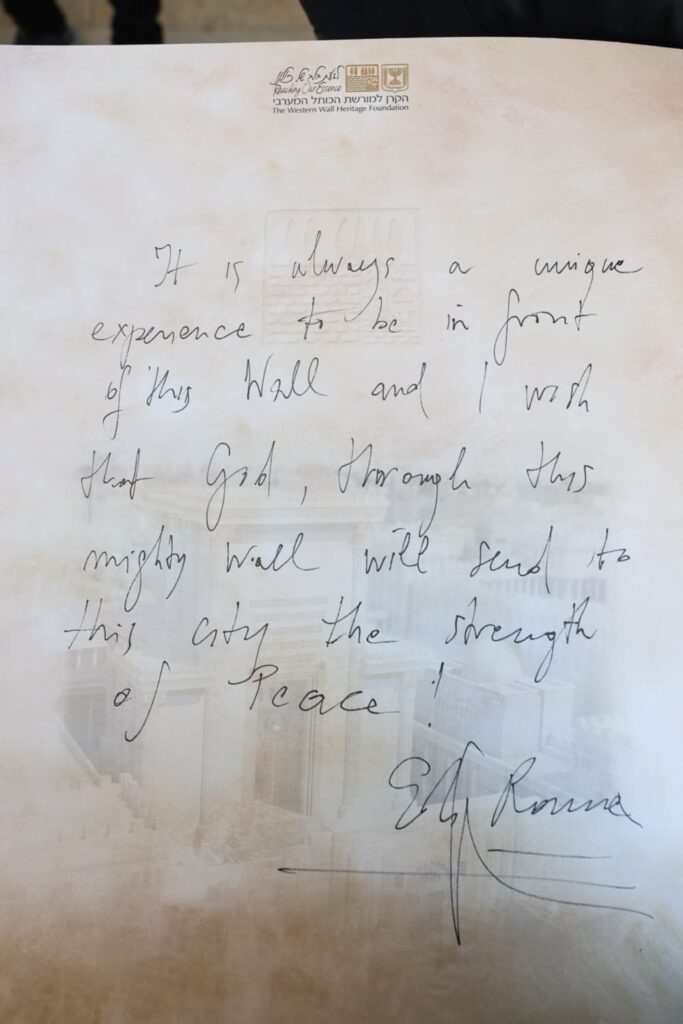 Reaching Our Essence
הקרן למורשת הכותל המערבי
The Western Wall Heritage Foundation
It is always a unique
experience to be in front
of this Wall and I wish
that God, thorough this
mighty Wall will send to
this city the strength
of Peace!